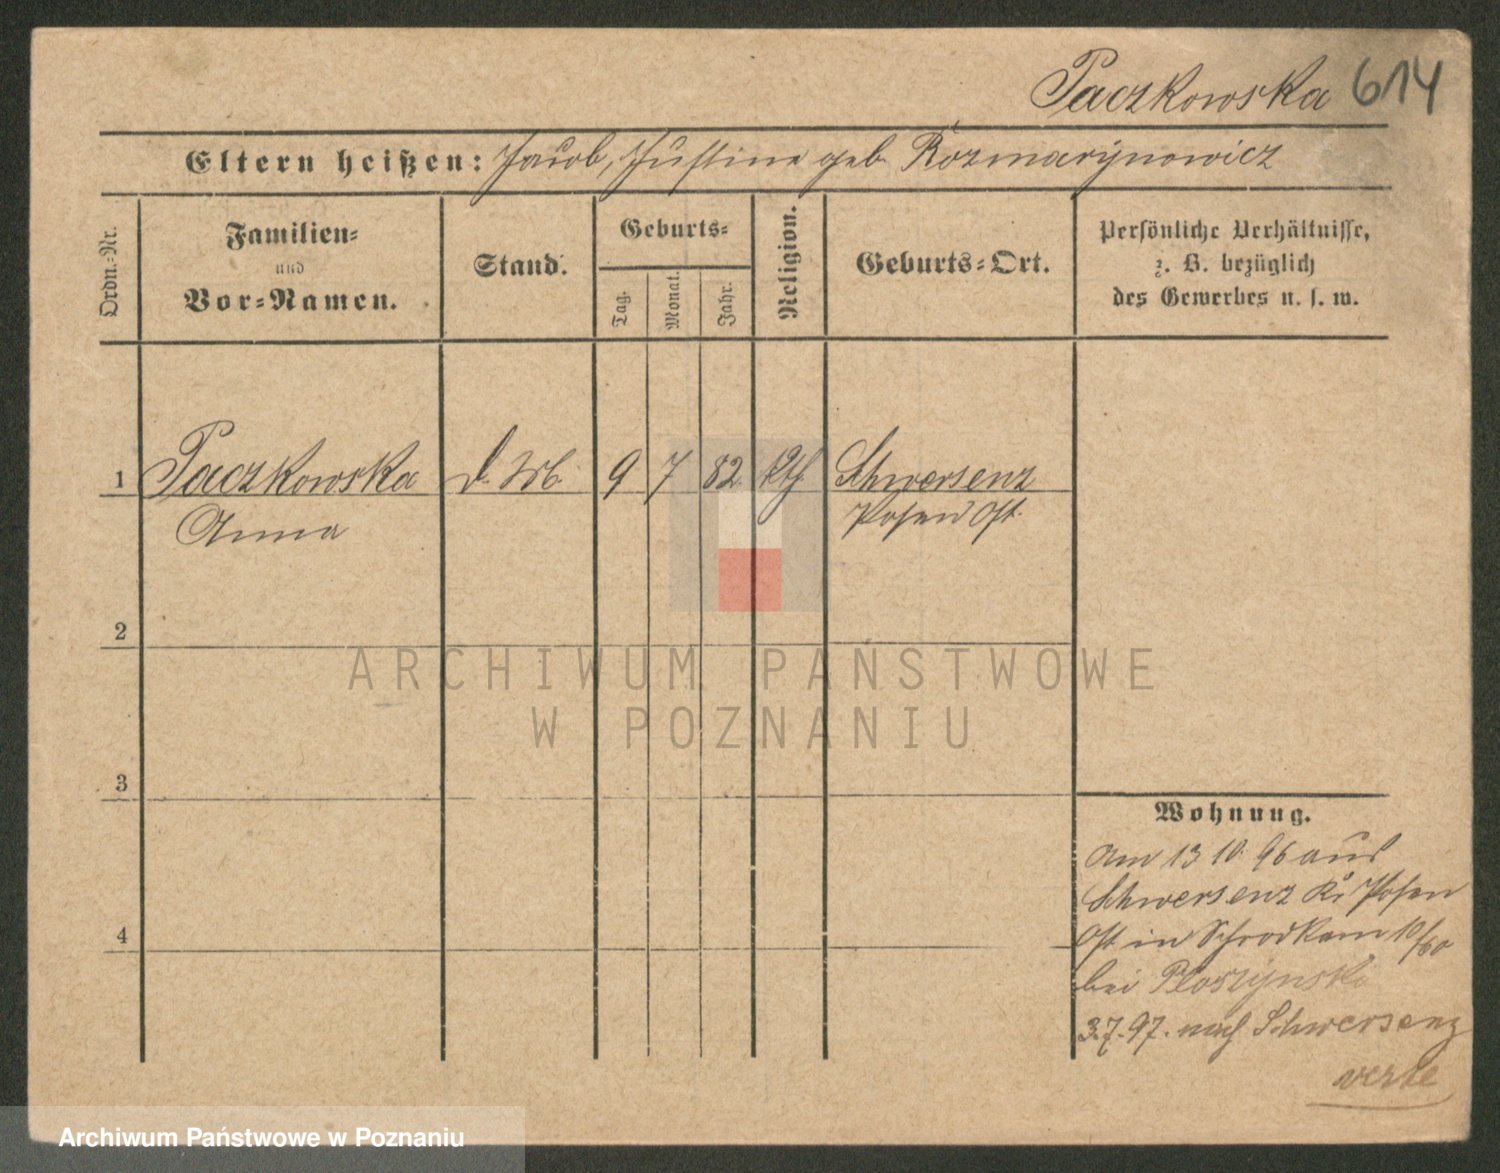 Paczkowska 614
Eltern heißen: Jacob, Justine geb Rozmarynowicz
Ordn.-Nr.
Familien-
und
Vor-Namen.
Stand.
Geburts-
Tag.
Monat.
Jahr.
Religion.
Geburts-Ort.
Persönliche Verhältnisse,
z. B. bezüglich
des Gewerbes u. s. w.
1 Paczkowska d. 9 7 82 kth Schwersenz
Anna Posen Ost.
2
3
4
Wohnung.
Am 13 10. 96 aus
Schwersenz Kr Posen
Ost in Schrodkam 10/60
bei
3.7.97. nach Schwersenz
verte
ARCHIWUM PAŃSTWOWE
W POZNANIU
Archiwum Państwowe w Poznaniu